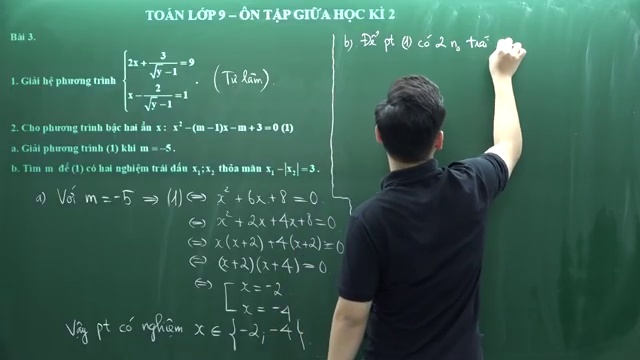 TOÁN LỚP 9 – ÔN TẬP GIỮA HỌC KÌ 2
Bài 3.
1. Giải hệ phương trình { 2x + 3/(√y − 1) = 9
x − 2/(√y − 1) = 1 . (Tự làm).
2. Cho phương trình bậc hai ẩn x: x² − (m − 1)x − m + 3 = 0 (1)
a. Giải phương trình (1) khi m = −5.
b. Tìm m để (1) có hai nghiệm trái dấu x₁; x₂ thỏa mãn x₁ − |x₂| = 3.
a) Với m = −5 ⇒ (1) ⇔ x² + 6x + 8 = 0
⇔ x² + 2x + 4x + 8 = 0
⇔ x(x+2) + 4(x+2) = 0
⇔ (x+2)(x+4) = 0
⇔ [ x = −2
x = −4
Vậy pt có nghiệm x ∈ {−2, −4}.
b) Để pt (1) có 2 n₀ trái